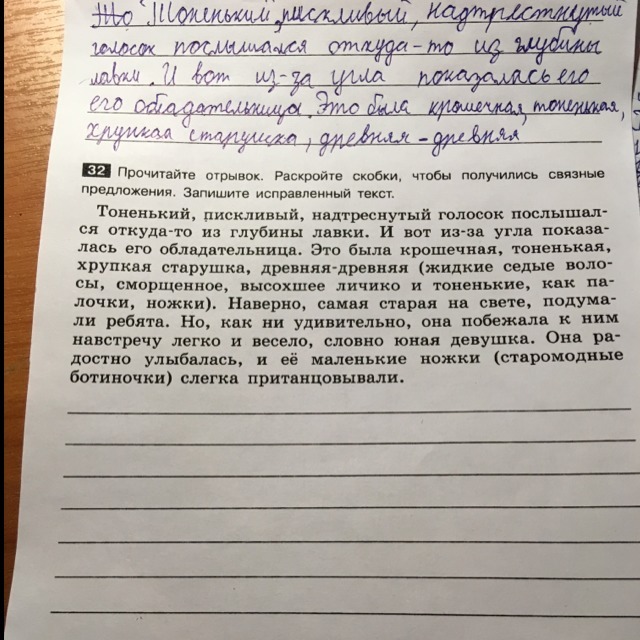 Это Тоненький, пискливый, надтреснутый
голосок послышался откуда-то из глубины
лавки. И вот из-за угла показалась его
его обладательница. Это была крошечная, тоненькая,
хрупкая старушка, древняя-древняя
32 Прочитайте отрывок. Раскройте скобки, чтобы получились связные
предложения. Запишите исправленный текст.
Тоненький, пискливый, надтреснутый голосок послышал-
ся откуда-то из глубины лавки. И вот из-за угла показа-
лась его обладательница. Это была крошечная, тоненькая,
хрупкая старушка, древняя-древняя (жидкие седые воло-
сы, сморщенное, высохшее личико и тоненькие, как па-
лочки, ножки). Наверно, самая старая на свете, подума-
ли ребята. Но, как ни удивительно, она побежала к ним
навстречу легко и весело, словно юная девушка. Она ра-
достно улыбалась, и её маленькие ножки (старомодные
ботиночки) слегка пританцовывали.